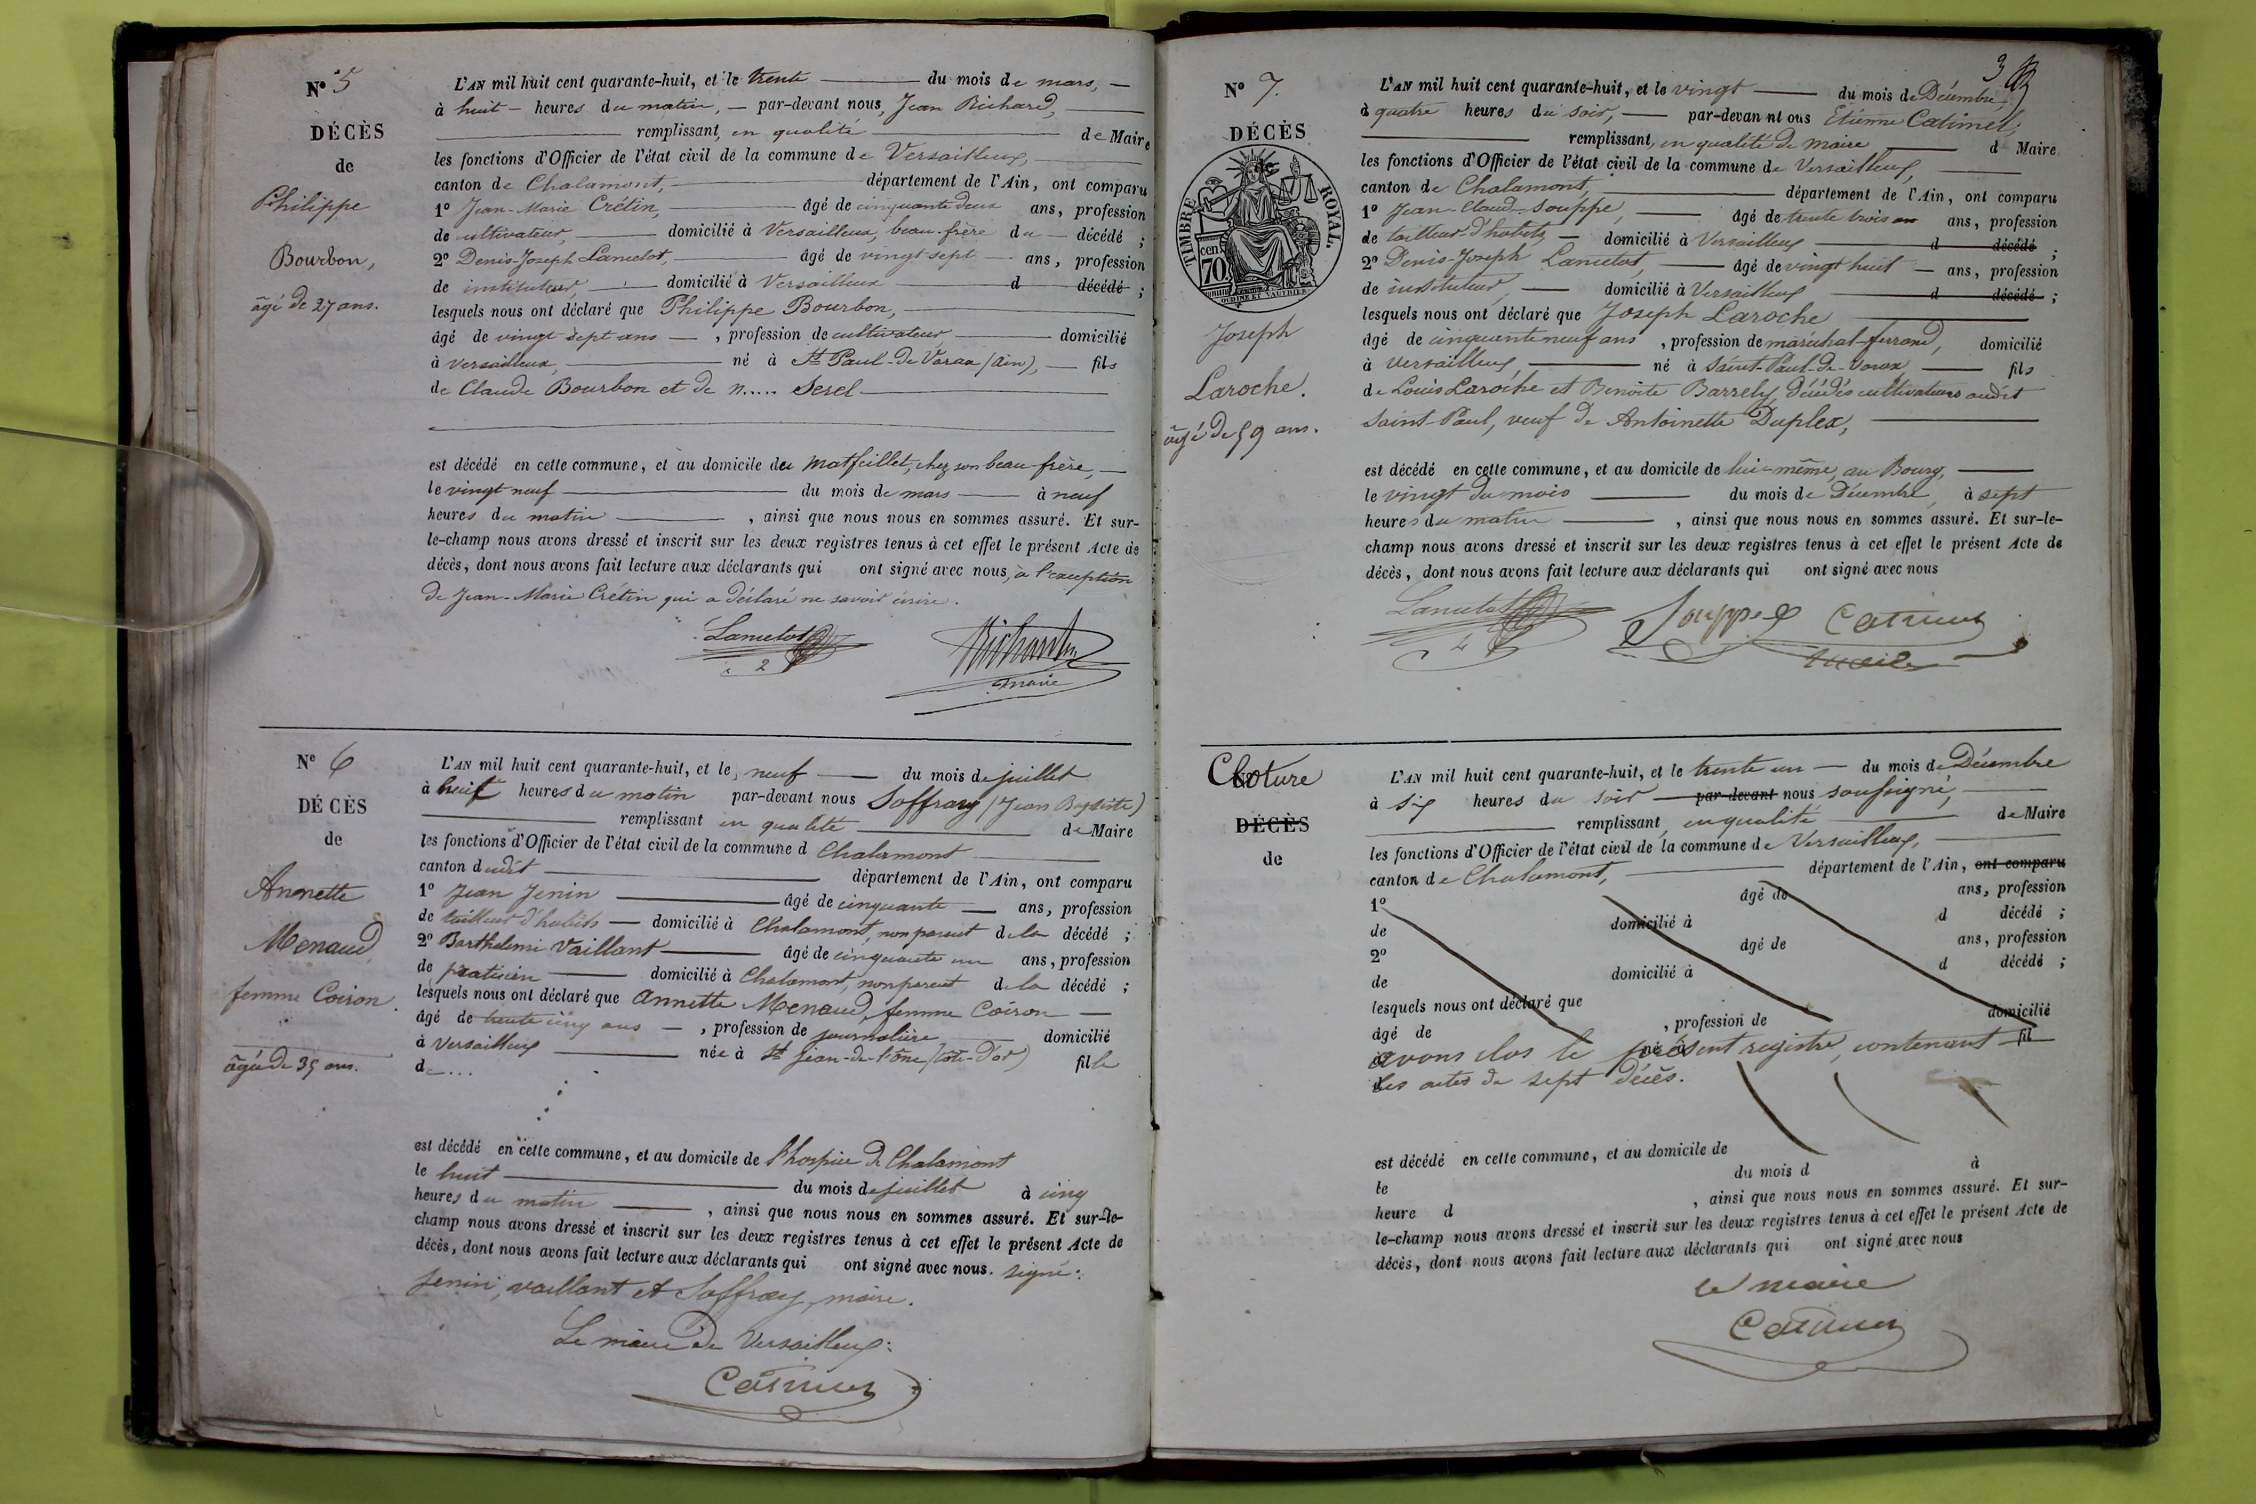 N° 5
DÉCÈS
de
Philippe
Bourbon,
âgé de 27 ans.
L'AN mil huit cent quarante-huit, et le trente du mois de mars,
à huit heures du matin, par-devant nous, Jean Richard,
remplissant, en qualité de Maire
les fonctions d'Officier de l'état civil de la commune de Versailleux,
canton de Chalamont, département de l'Ain, ont comparu
1° Jean-Marie Crétin, âgé de cinquante deux ans, profession
de cultivateur, domicilié à Versailleux, beau-frère du décédé ;
2° Denis-Joseph Lancelot, âgé de vingt sept ans, profession
de instituteur, domicilié à Versailleux d décédé ;
lesquels nous ont déclaré que Philippe Bourbon,
âgé de vingt sept ans, profession de cultivateur, domicilié
à Versailleux, né à St Paul-de-Varax (Ain), fils
de Claude Bourbon et de n..... Serel
est décédé en cette commune, et au domicile du Matfeillet, chez son beau-frère,
le vingt neuf du mois de mars à neuf
heures du matin, ainsi que nous nous en sommes assuré. Et sur-
le-champ nous avons dressé et inscrit sur les deux registres tenus à cet effet le présent Acte de
décès, dont nous avons fait lecture aux déclarants qui ont signé avec nous, à l'exception
de Jean-Marie Crétin qui a déclaré ne savoir écrire.
Lancelot Richard
maire
N° 6
DÉCÈS
de
Annette
Menaud
femme Coiron.
âgée de 35 ans.
L'AN mil huit cent quarante-huit, et le neuf du mois de juillet
à huit heures du matin par-devant nous Soffray (Jean Baptiste)
remplissant en qualité de Maire
les fonctions d'Officier de l'état civil de la commune d Chalamont
canton dudit département de l'Ain, ont comparu
1° Jean Jenin âgé de cinquante ans, profession
de tailleur d'habits domicilié à Chalamont, non parent de la décédé ;
2° Barthelemi Vaillant âgé de cinquante un ans, profession
de praticien domicilié à Chalamont, non parent de la décédé ;
lesquels nous ont déclaré que Annette Menaud, femme Coiron
âgé de trente cinq ans, profession de journalière domicilié
à Versailleux née à St Jean-de-l'ône (côte-d'or) fille
de...
est décédé en cette commune, et au domicile de l'hospice de Chalamont
le huit du mois de juillet à cinq
heures du matin, ainsi que nous nous en sommes assuré. Et sur-le-
champ nous avons dressé et inscrit sur les deux registres tenus à cet effet le présent Acte de
décès, dont nous avons fait lecture aux déclarants qui ont signé avec nous. signé:
Jenin, vaillant et Soffray, maire.
Le maire de Versailleux:
Catimel
3
N° 7.
DÉCÈS
de
TIMBRE ROYAL
70 cen
OUDINE ET VAUTHIER
Joseph
Laroche.
âgé de 59 ans.
L'AN mil huit cent quarante-huit, et le vingt du mois de Décembre,
à quatre heures du soir, par-devan nt ous Etienne Catimel,
remplissant, en qualité de maire d Maire
les fonctions d'Officier de l'état civil de la commune de Versailleux,
canton de Chalamont, département de l'Ain, ont comparu
1° Jean-Claud Souppe, âgé de trente trois ans, profession
de tailleur d'habits domicilié à Versailleux d décédé ;
2° Denis-Joseph Lancelot, âgé de vingt huit ans, profession
de instituteur, domicilié à Versailleux d décédé ;
lesquels nous ont déclaré que Joseph Laroche
âgé de cinquante neuf ans, profession de maréchal-ferrand, domicilié
à Versailleux né à Saint-Paul-de-Varax, fils
de Louis Laroche et Benoite Barrely, Décédés cultivateurs audit
Saint Paul, veuf de Antoinette Duplex,
est décédé en cette commune, et au domicile de lui-même, au Bourg,
le vingt du mois du mois de Décembre, à sept
heures du matin, ainsi que nous nous en sommes assuré. Et sur-le-
champ nous avons dressé et inscrit sur les deux registres tenus à cet effet le présent Acte de
décès, dont nous avons fait lecture aux déclarants qui ont signé avec nous
Lancelot Souppe Catimel
maire
Cloture
DÉCÈS
de
L'AN mil huit cent quarante-huit, et le trente un du mois de Décembre
à six heures du soir par-devant nous soussigné,
remplissant, en qualité de Maire
les fonctions d'Officier de l'état civil de la commune de Versailleux,
canton de Chalamont, département de l'Ain, ont comparu
1° âgé de ans, profession
de domicilié à d décédé ;
2° âgé de ans, profession
de domicilié à d décédé ;
lesquels nous ont déclaré que
âgé de , profession de domicilié
avons clos le présent registre, contenant fil
les actes de sept décès.
est décédé en cette commune, et au domicile de
le du mois d à
heure d , ainsi que nous nous en sommes assuré. Et sur-
le-champ nous avons dressé et inscrit sur les deux registres tenus à cet effet le présent Acte de
décès, dont nous avons fait lecture aux déclarants qui ont signé avec nous
le maire
Catimel